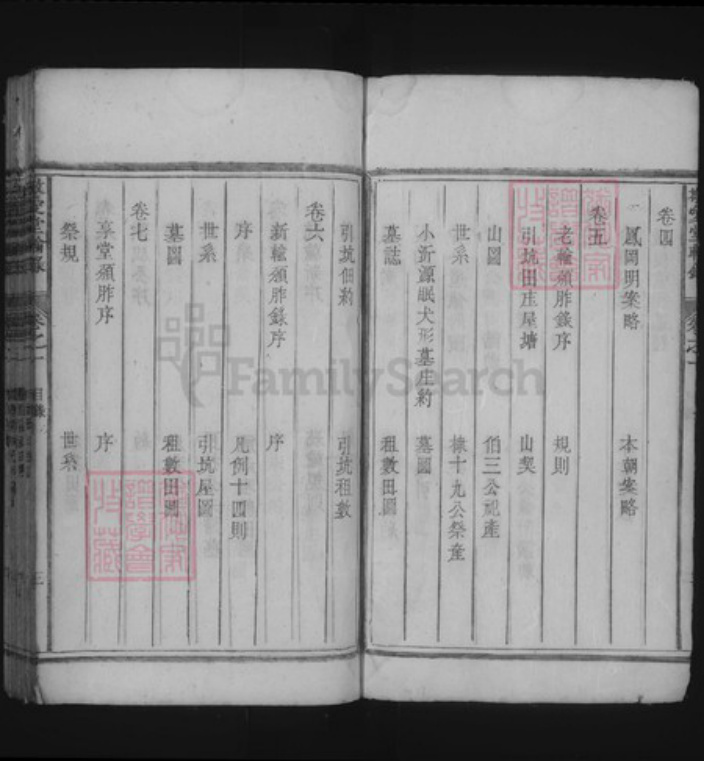 卷四
鳳岡明案略 本朝案略
卷五
老輪頒胙錄序 規則
引坑田庄屋塘 山契
山圖 伯三公祀產
世系 棣十九公祭產
小沂源眠犬形墓庄約 墓圖
墓誌 租數田圖
引坑佃約 引坑租數
卷六
新輪頒胙錄序 序
序 凡例十四則
世系 引坑屋圖
墓圖 租數田圖
卷七
享堂頒胙序 序
祭規 世系
目錄
三
FamilySearch